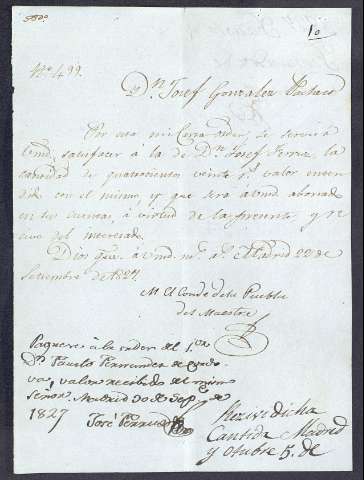 10
Nº 499.
Dn. Josef Gonzalez Pacheco
Por esta mi Carta orden, se servirá
Vmd, satisfacer á la de Dn. Josef Ferraz, la
cantidad de quatrocientos veinte rs. valor enten-
dido con el mismo, y que será á Vmd abonada
en su cuenta, á virtud de la presente, y re-
civo del interesado.
Dios gue. á Vmd. ms. as. Madrid 22 de
Setiembre de 1827.
El Conde de la Puebla
del Maestre
Paguese á la orden del Sor.
Dn. Paulo Fernandez de
valor recibido del mismo
Señor. Madrid 30 de Sep.
1827
José Ferraz
Rezivi dicha
Cantida Madrid
y Otubre 5. de